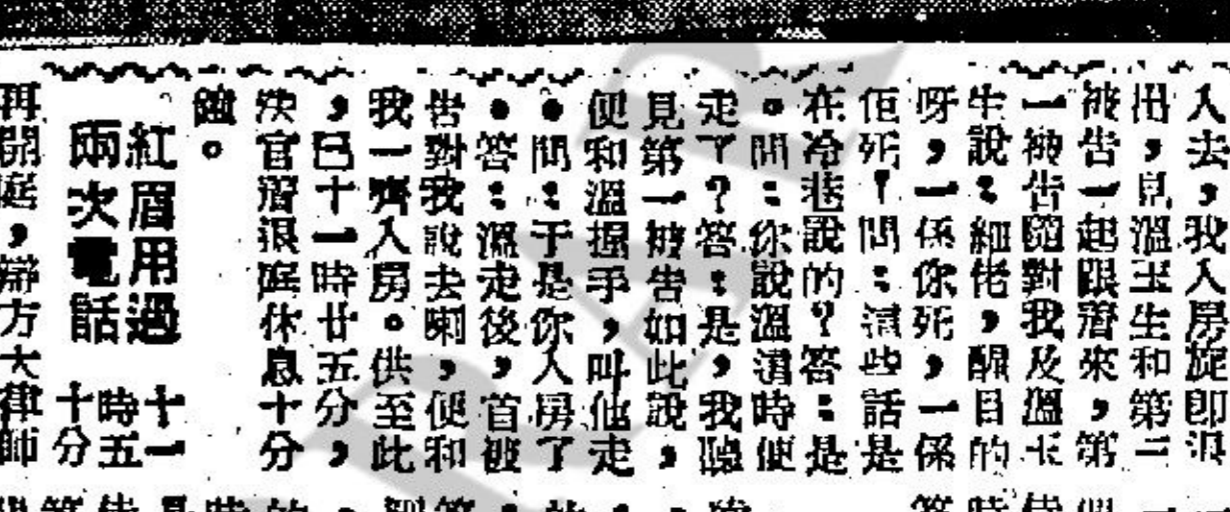 入去，我入房旋即退
出，見溫玉生和第二
被告一起跟着來，第
一被告隨對我及溫玉
生說：細佬，醒目的
呀，一係你死，一係
佢死！問：這些話是
在冷巷說的？答：是
。問：你說溫這時便
走了？答：是，我聽
見第一被告如此說，
便和溫握手，叫他走
。問：于是你入房了
。答：溫走後，首被
告對我說去喇，便和
我一齊入房。供至此
，已十一時廿五分，
法官宣退庭休息十分
鐘。
紅眉用過
兩次電話
十一
時五
十分
再開庭，辯方大律師